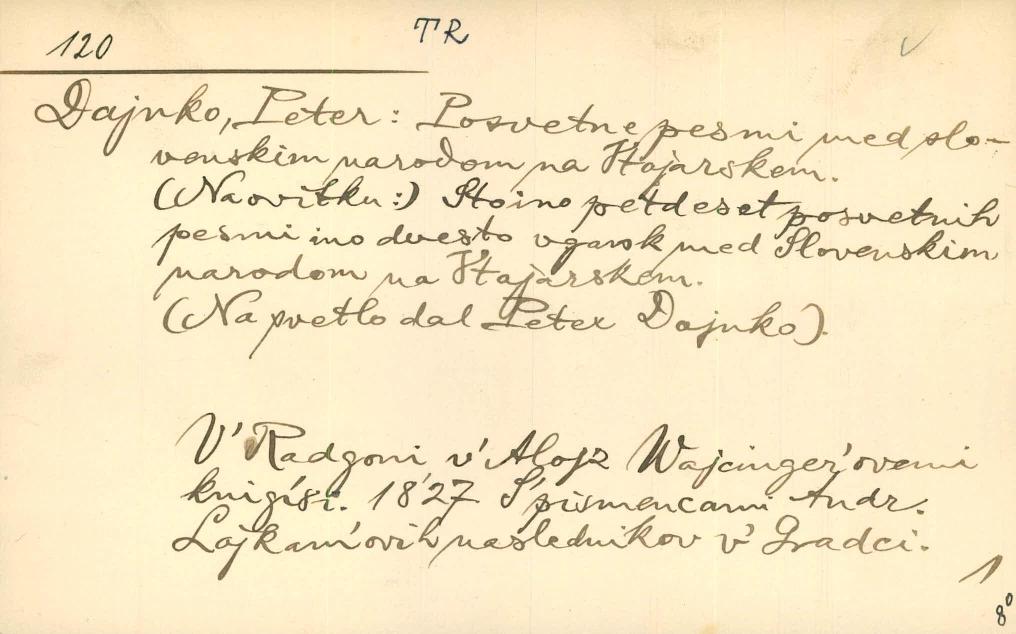 120
TR
Dajnko, Peter: Posvetne pesmi med slo-
venskim narodom na Štajarskem.
(Na ovitku:) Sto ino petdeset posvetnih
pesmi ino dvesto vgank med Slovenskim
narodom na Štajarskem.
(Na svetlo dal Peter Dajnko).
V' Radgoni v' Alojz Wajcinger'ovemi
knigiši. 1827 S' pismencami Andr.
Lajkam'ovih naslednikov v' Gradci.
1
8º